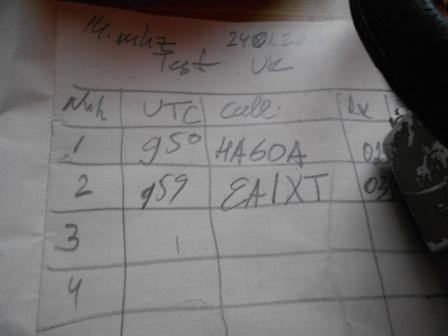 14. mhz 24.01.20
Test UR
Nuh UTC Call Rx
1 950 HA6OA 02
2 959 EA1XT 03
3 1
4